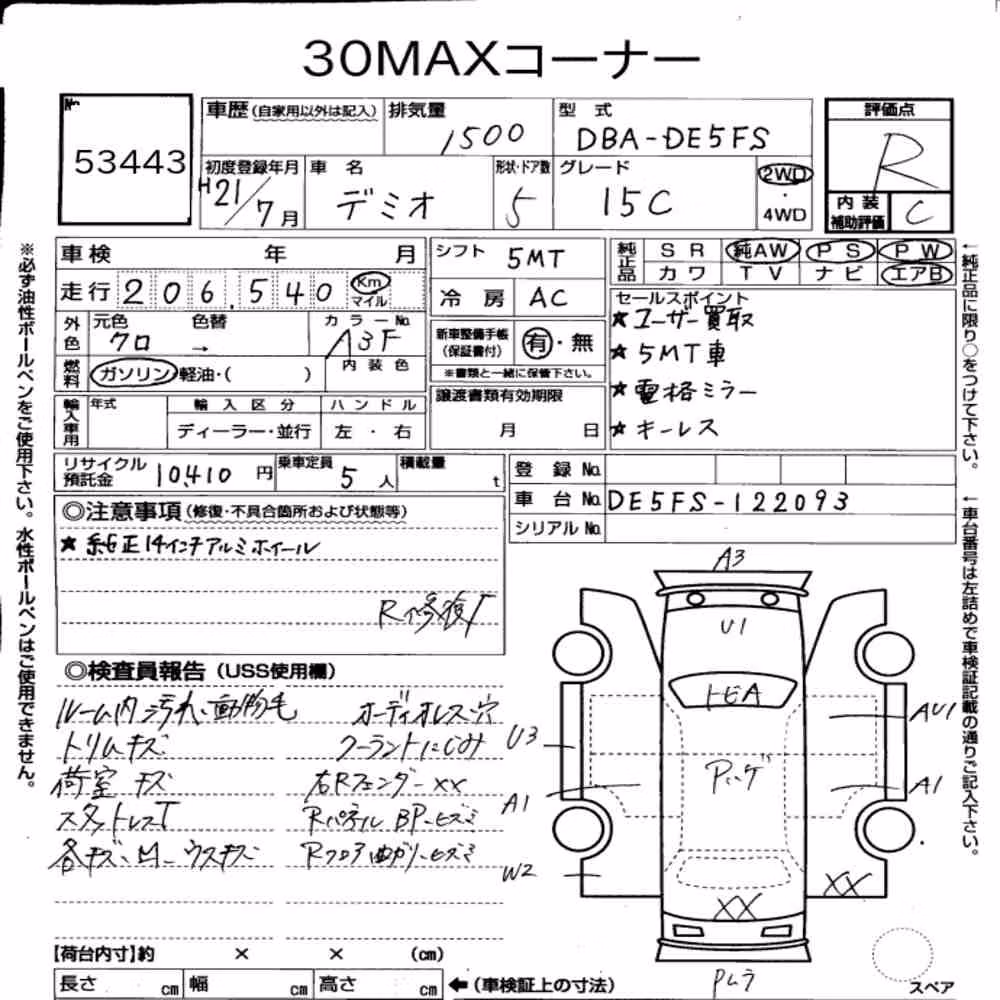 30MAXコーナー
No.
53443
車歴 (自家用以外は記入)
排気量
1500
型 式
DBA-DE5FS
評価点
R
初度登録年月
H21/7月
車 名
デミオ
形状・ドア数
5
グレード
15C
2WD
・
4WD
内 装
補助評価
C
※必ず油性ボールペンをご使用下さい。水性ボールペンはご使用できません。
車検 年 月
走行 206,540 Km
マイル
シフト 5MT
冷 房 AC
純正品
S R 純AW P S P W
カ ワ T V ナ ビ エアB
外色
元色
クロ
色替
→
カ ラ ー No.
A3F
燃料
ガソリン・軽油・( )
内 装 色
新車整備手帳
(保証書付)
有・無
※書類と一緒に保管下さい。
セールスポイント
★ユーザー買取
★5MT車
★電格ミラー
★キーレス
輸入車用
年式
輸 入 区 分
ディーラー・並行
ハ ン ド ル
左 ・ 右
譲渡書類有効期限
月 日
←純正品に限り○をつけて下さい。
リサイクル
預託金
10,410 円
乗車定員
5 人
積載量
t
登 録 No.
車 台 No. DE5FS-122093
シリアル No.
←車台番号は左詰めで車検証記載の通りご記入下さい。
◎注意事項 (修復・不具合箇所および状態等)
★純正14インチアルミホイール
R修復
◎検査員報告 (USS使用欄)
ルーム内汚れ、動物毛
トリムキズ
荷室キズ
スタットレスT
各キズ・M・ウスキズ
オーディオレス穴
クーラントにじみ
右Rフェンダー××
Rパネル BP-ヒズミ
Rフロア曲がり-ヒズミ
A3
U1
トビA
U3
AU1
A1
A1
W2
XX
XX
スペア
【荷台内寸】約 × × (cm)
長さ cm 幅 cm 高さ cm ←(車検証上の寸法)